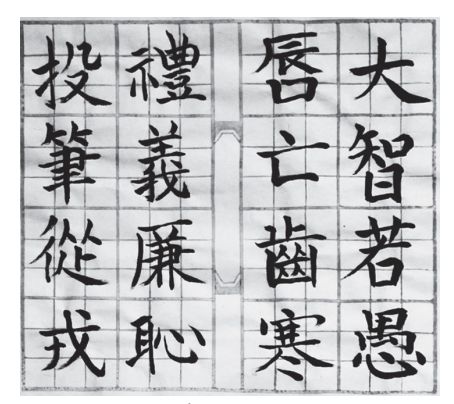 大智若愚
唇亡齒寒
禮義廉恥
投筆從戎